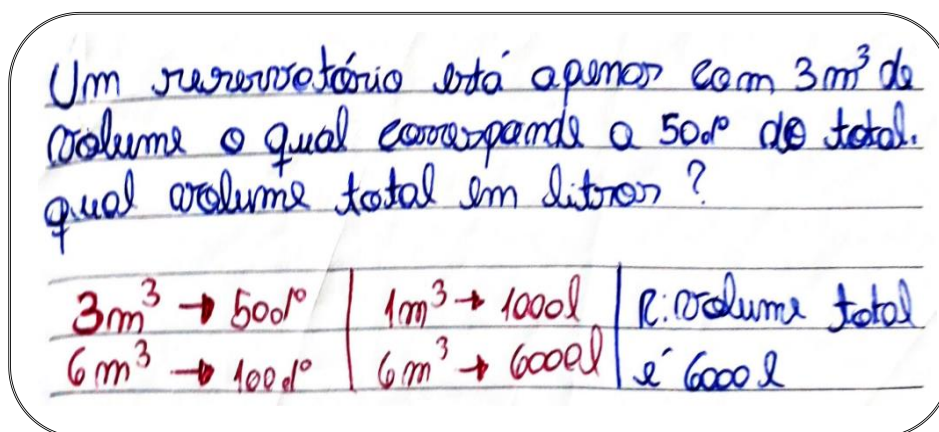 Um reservatório está apenas com 3m³ de
volume o qual corresponde a 50% do total.
qual volume total em litros?
3m³ → 50% | 1m³ → 1000l | R: volume total
6m³ → 100% | 6m³ → 6000l | é 6000l